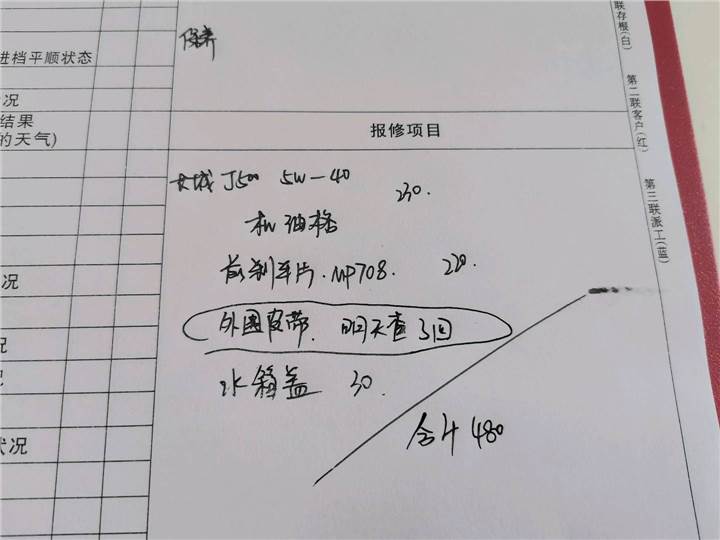 保养
进档平顺状态
况
结果
的天气)
报修项目
长城 J500 5W-40 230.
机油格
前刹车片. MP708. 220.
外围皮带. 明天查3回
水箱盖 30.
合计 480
况
况
况
状况
联存根(白)
第二联客户(红)
第三联派工(蓝)